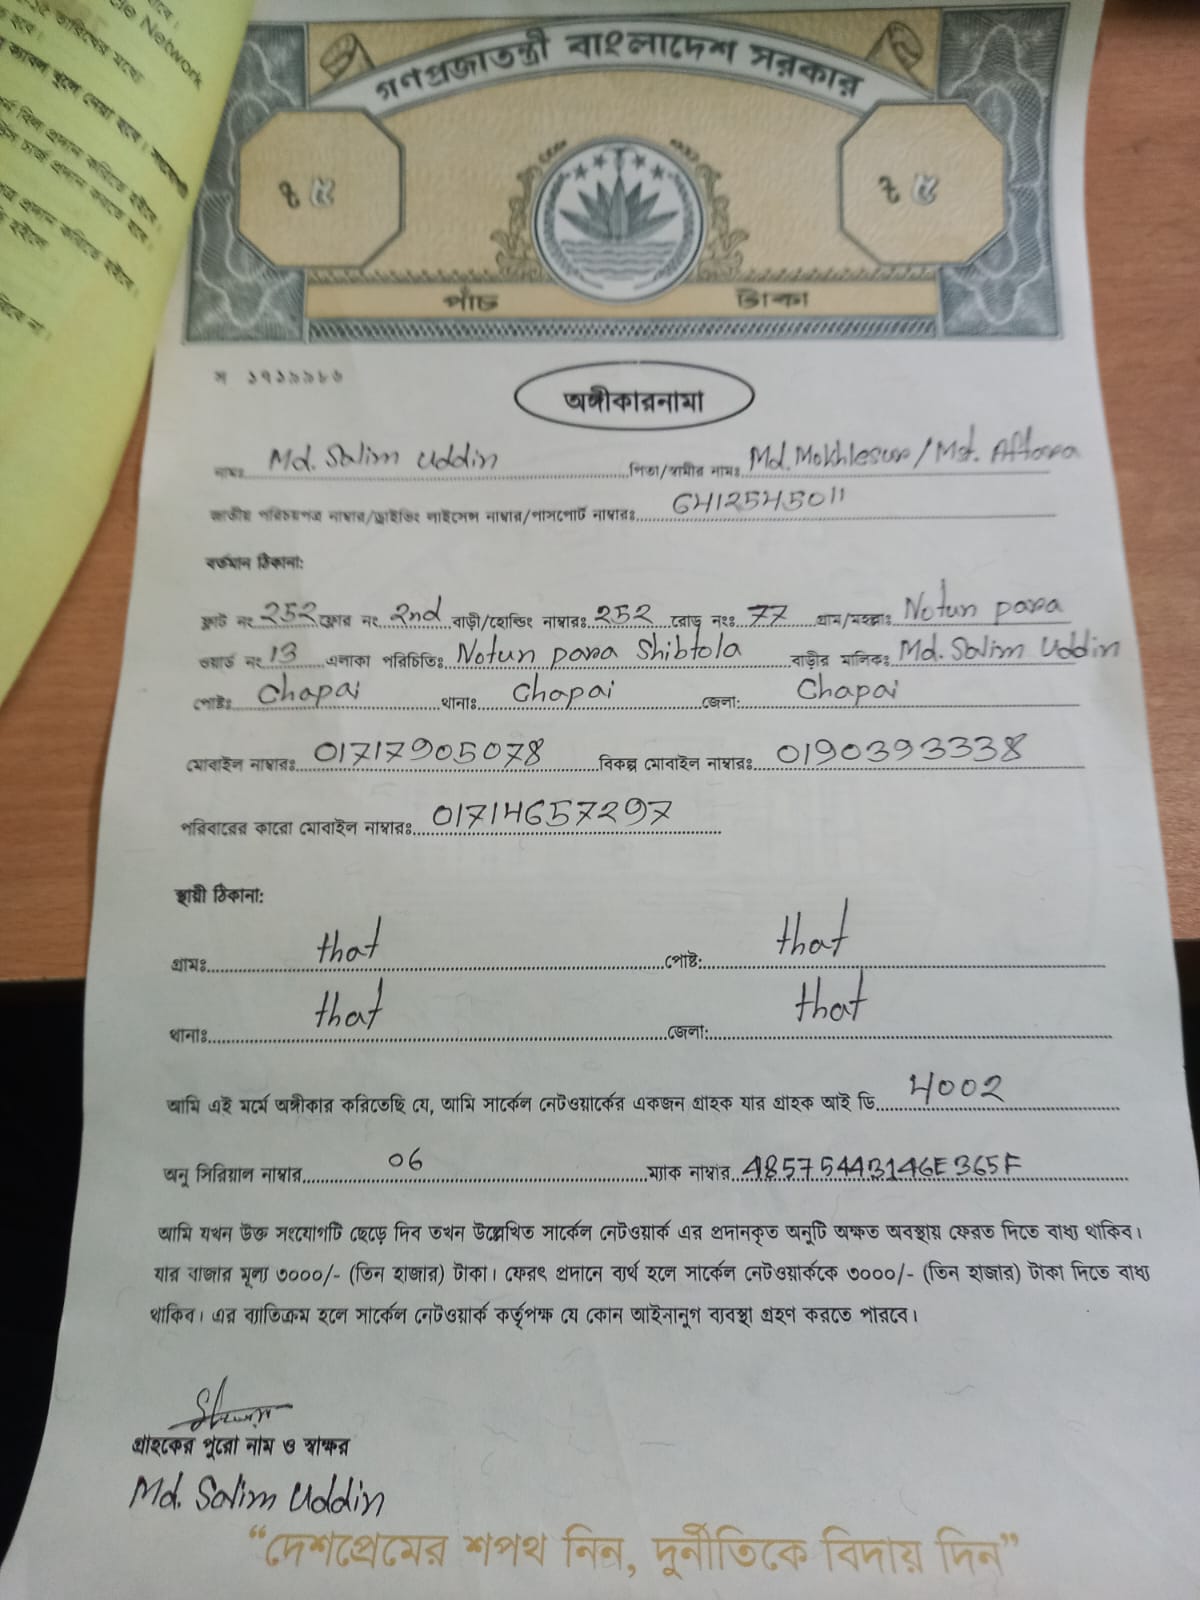 গণপ্রজাতন্ত্রী বাংলাদেশ সরকার
৳ ৫ ৳ ৫
পাঁচ টাকা
স ১৭১৯৯৮৬
অঙ্গীকারনামা
নামঃ Md. Salim Uddin পিতা/স্বামীর নামঃ Md. Mokhlesur / Mst. Aftora
জাতীয় পরিচয়পত্র নাম্বার/ড্রাইভিং লাইসেন্স নাম্বার/পাসপোর্ট নাম্বারঃ 6412545011
বর্তমান ঠিকানা:
ফ্লাট নং 252 ফ্লোর নং 2nd বাড়ী/হোল্ডিং নাম্বারঃ 252 রোড নংঃ 77 গ্রাম/মহল্লাঃ Notun para
ওয়ার্ড নং 13 এলাকা পরিচিতিঃ Notun para Shibtola বাড়ীর মালিকঃ Md. Salim Uddin
পোষ্টঃ Chapai থানাঃ Chapai জেলা: Chapai
মোবাইল নাম্বারঃ 01717905078 বিকল্প মোবাইল নাম্বারঃ 0190393338
পরিবারের কারো মোবাইল নাম্বারঃ 01714657297
স্থায়ী ঠিকানা:
গ্রামঃ that পোষ্ট: that
থানাঃ that জেলা: that
আমি এই মর্মে অঙ্গীকার করিতেছি যে, আমি সার্কেল নেটওয়ার্কের একজন গ্রাহক যার গ্রাহক আই ডি 4002
অনু সিরিয়াল নাম্বার 06 ম্যাক নাম্বার 48575443146E365F
আমি যখন উক্ত সংযোগটি ছেড়ে দিব তখন উল্লেখিত সার্কেল নেটওয়ার্ক এর প্রদানকৃত অনুটি অক্ষত অবস্থায় ফেরত দিতে বাধ্য থাকিব।
যার বাজার মূল্য ৩০০০/- (তিন হাজার) টাকা। ফেরৎ প্রদানে ব্যর্থ হলে সার্কেল নেটওয়ার্ককে ৩০০০/- (তিন হাজার) টাকা দিতে বাধ্য
থাকিব। এর ব্যতিক্রম হলে সার্কেল নেটওয়ার্ক কর্তৃপক্ষ যে কোন আইনানুগ ব্যবস্থা গ্রহণ করতে পারবে।
গ্রাহকের পুরো নাম ও স্বাক্ষর
Md. Salim Uddin
“দেশপ্রেমের শপথ নিন, দুর্নীতিকে বিদায় দিন”